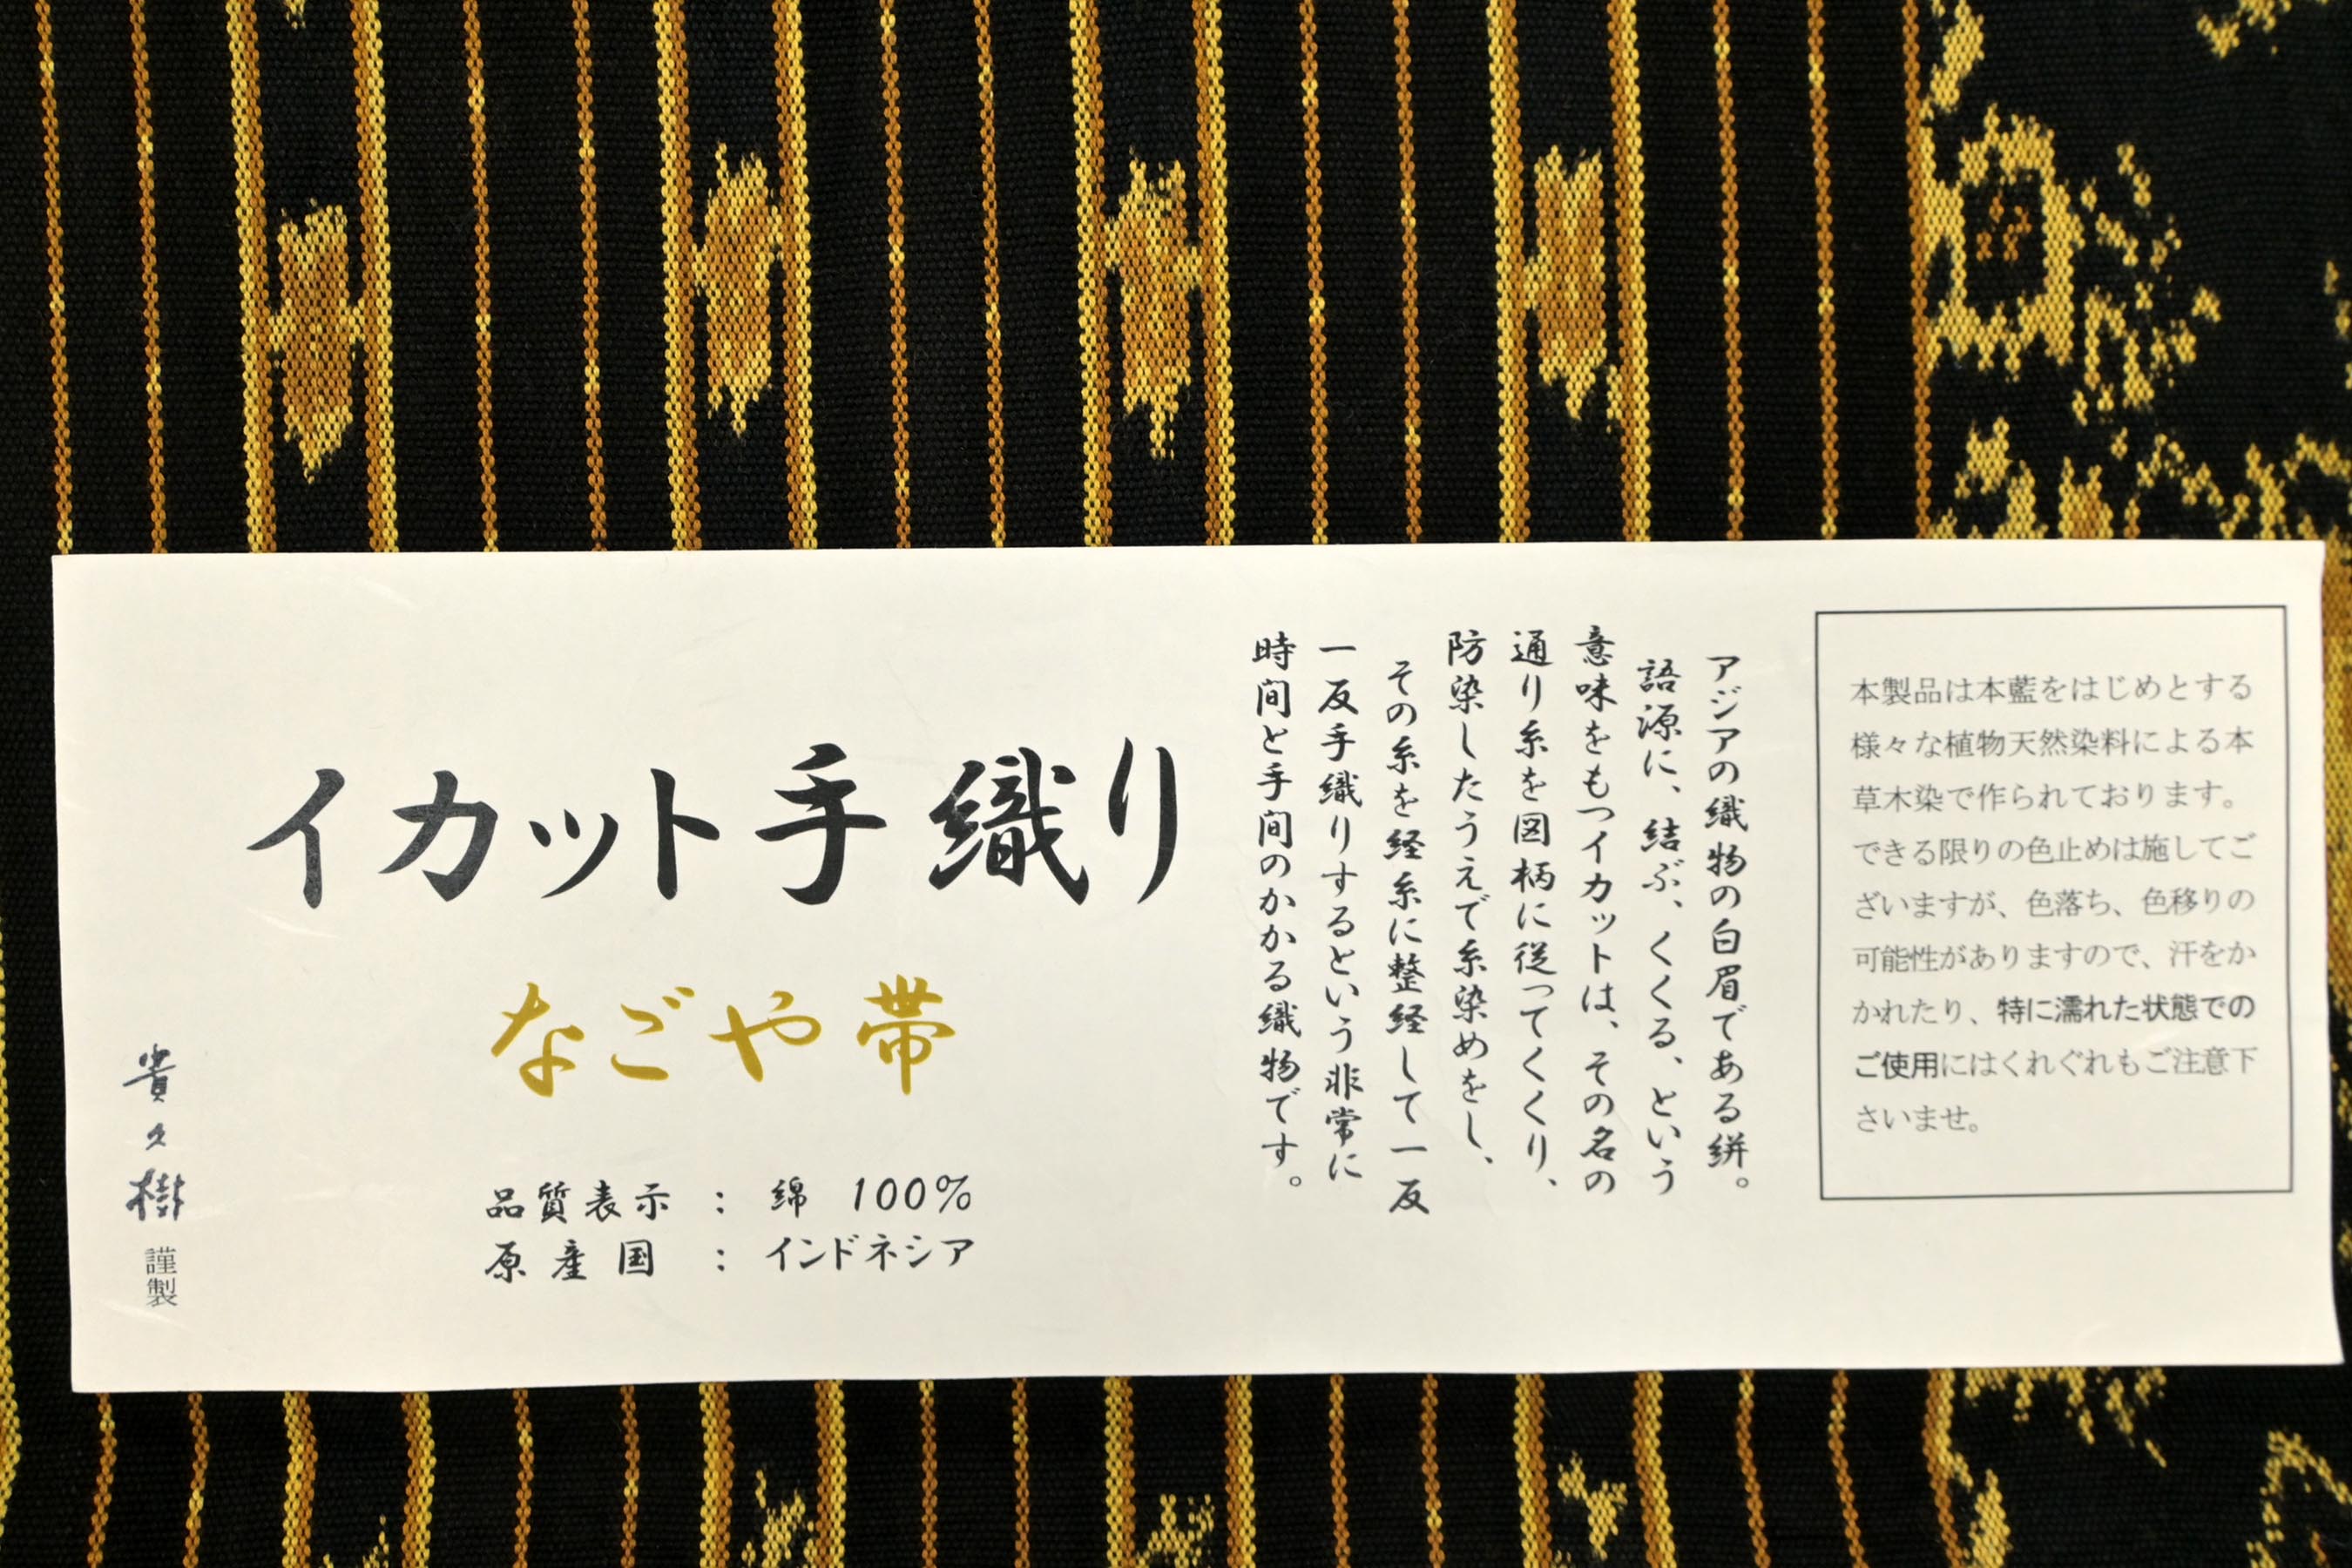 本製品は本藍をはじめとする
様々な植物天然染料による本
草木染で作られております。
できる限りの色止めは施してご
ざいますが、色落ち、色移りの
可能性がありますので、汗をか
かれたり、特に濡れた状態での
ご使用にはくれぐれもご注意下
さいませ。
アジアの織物の白眉である絣。
語源に、結ぶ、くくる、という
意味をもつイカットは、その名の
通り糸を図柄に従ってくくり、
防染したうえで糸染めをし、
その糸を経糸に整経して一反
一反手織りするという非常に
時間と手間のかかる織物です。
イカット手織り
なごや帯
品質表示 : 綿 100%
原産国 : インドネシア
貴久樹 謹製